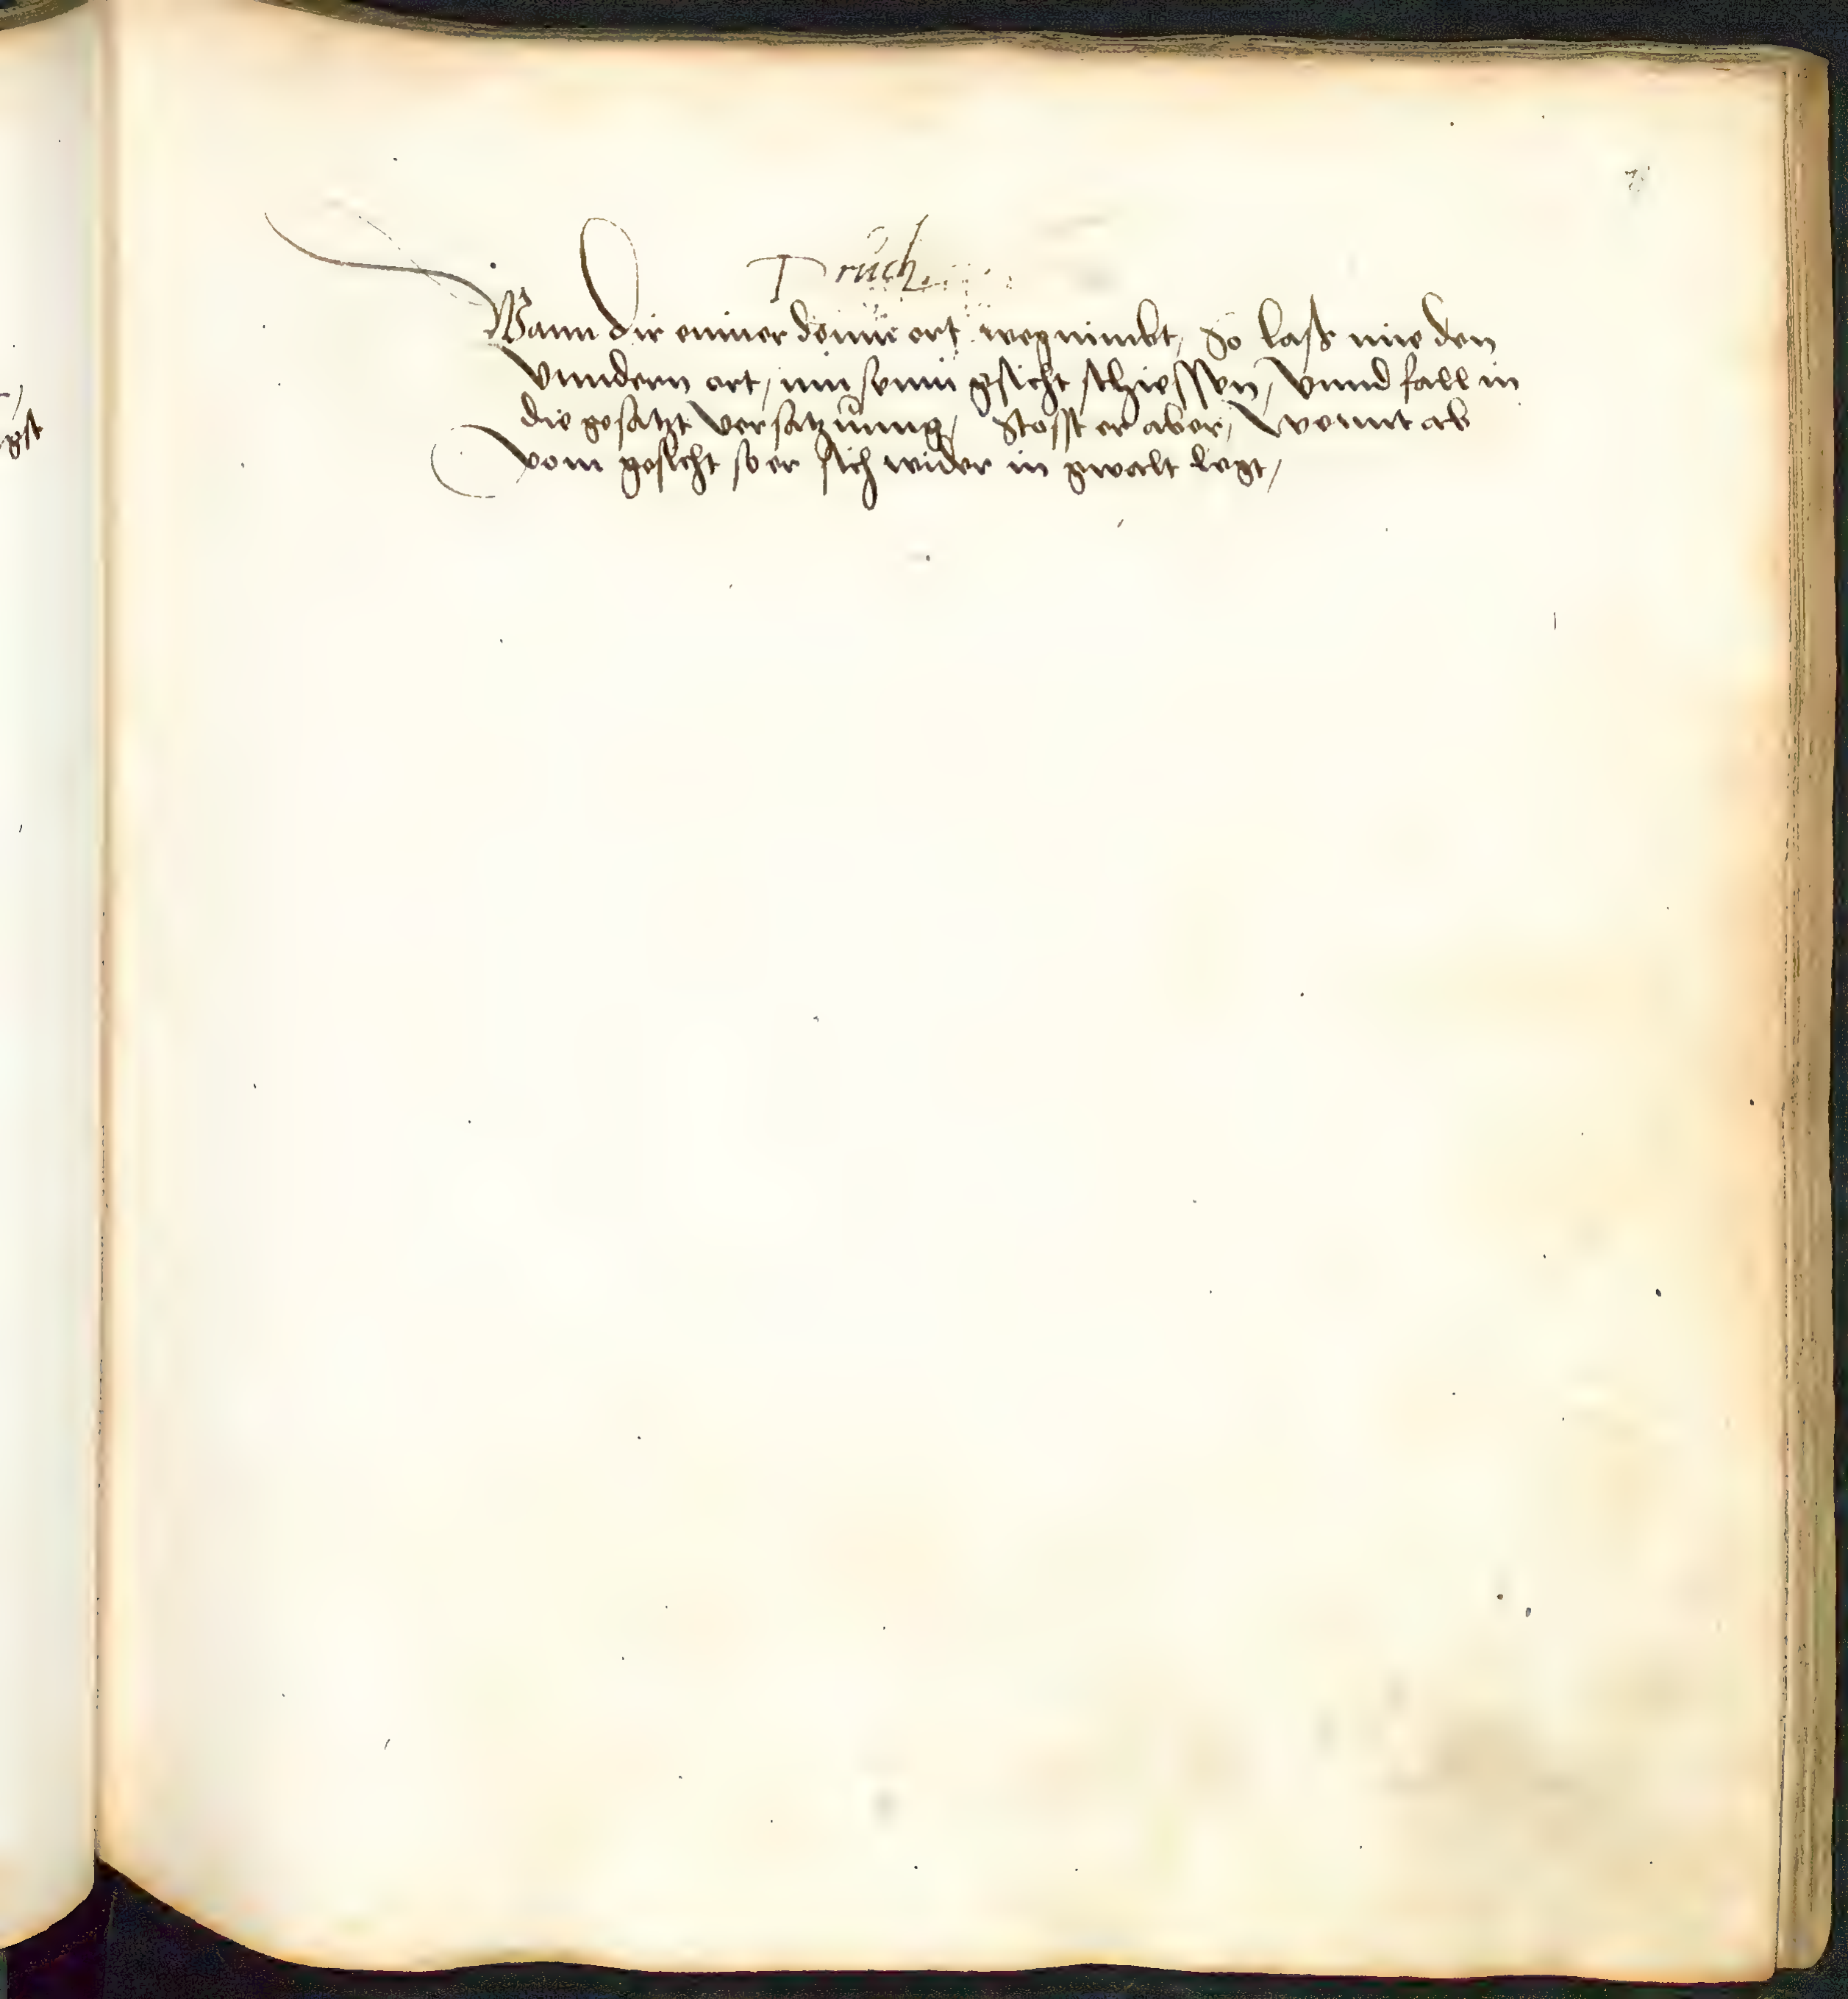 Trüch.
Wann dir einer deinn ort wegnimbt, So lasß nie den
vnndern ort, inn seinn gsicht schiessen, Vnnd fall in
die gesatzt versatzŭnng, Stosst er aber, Wennt ab
vom gesicht so er sich wider in gwalt legt,
gst